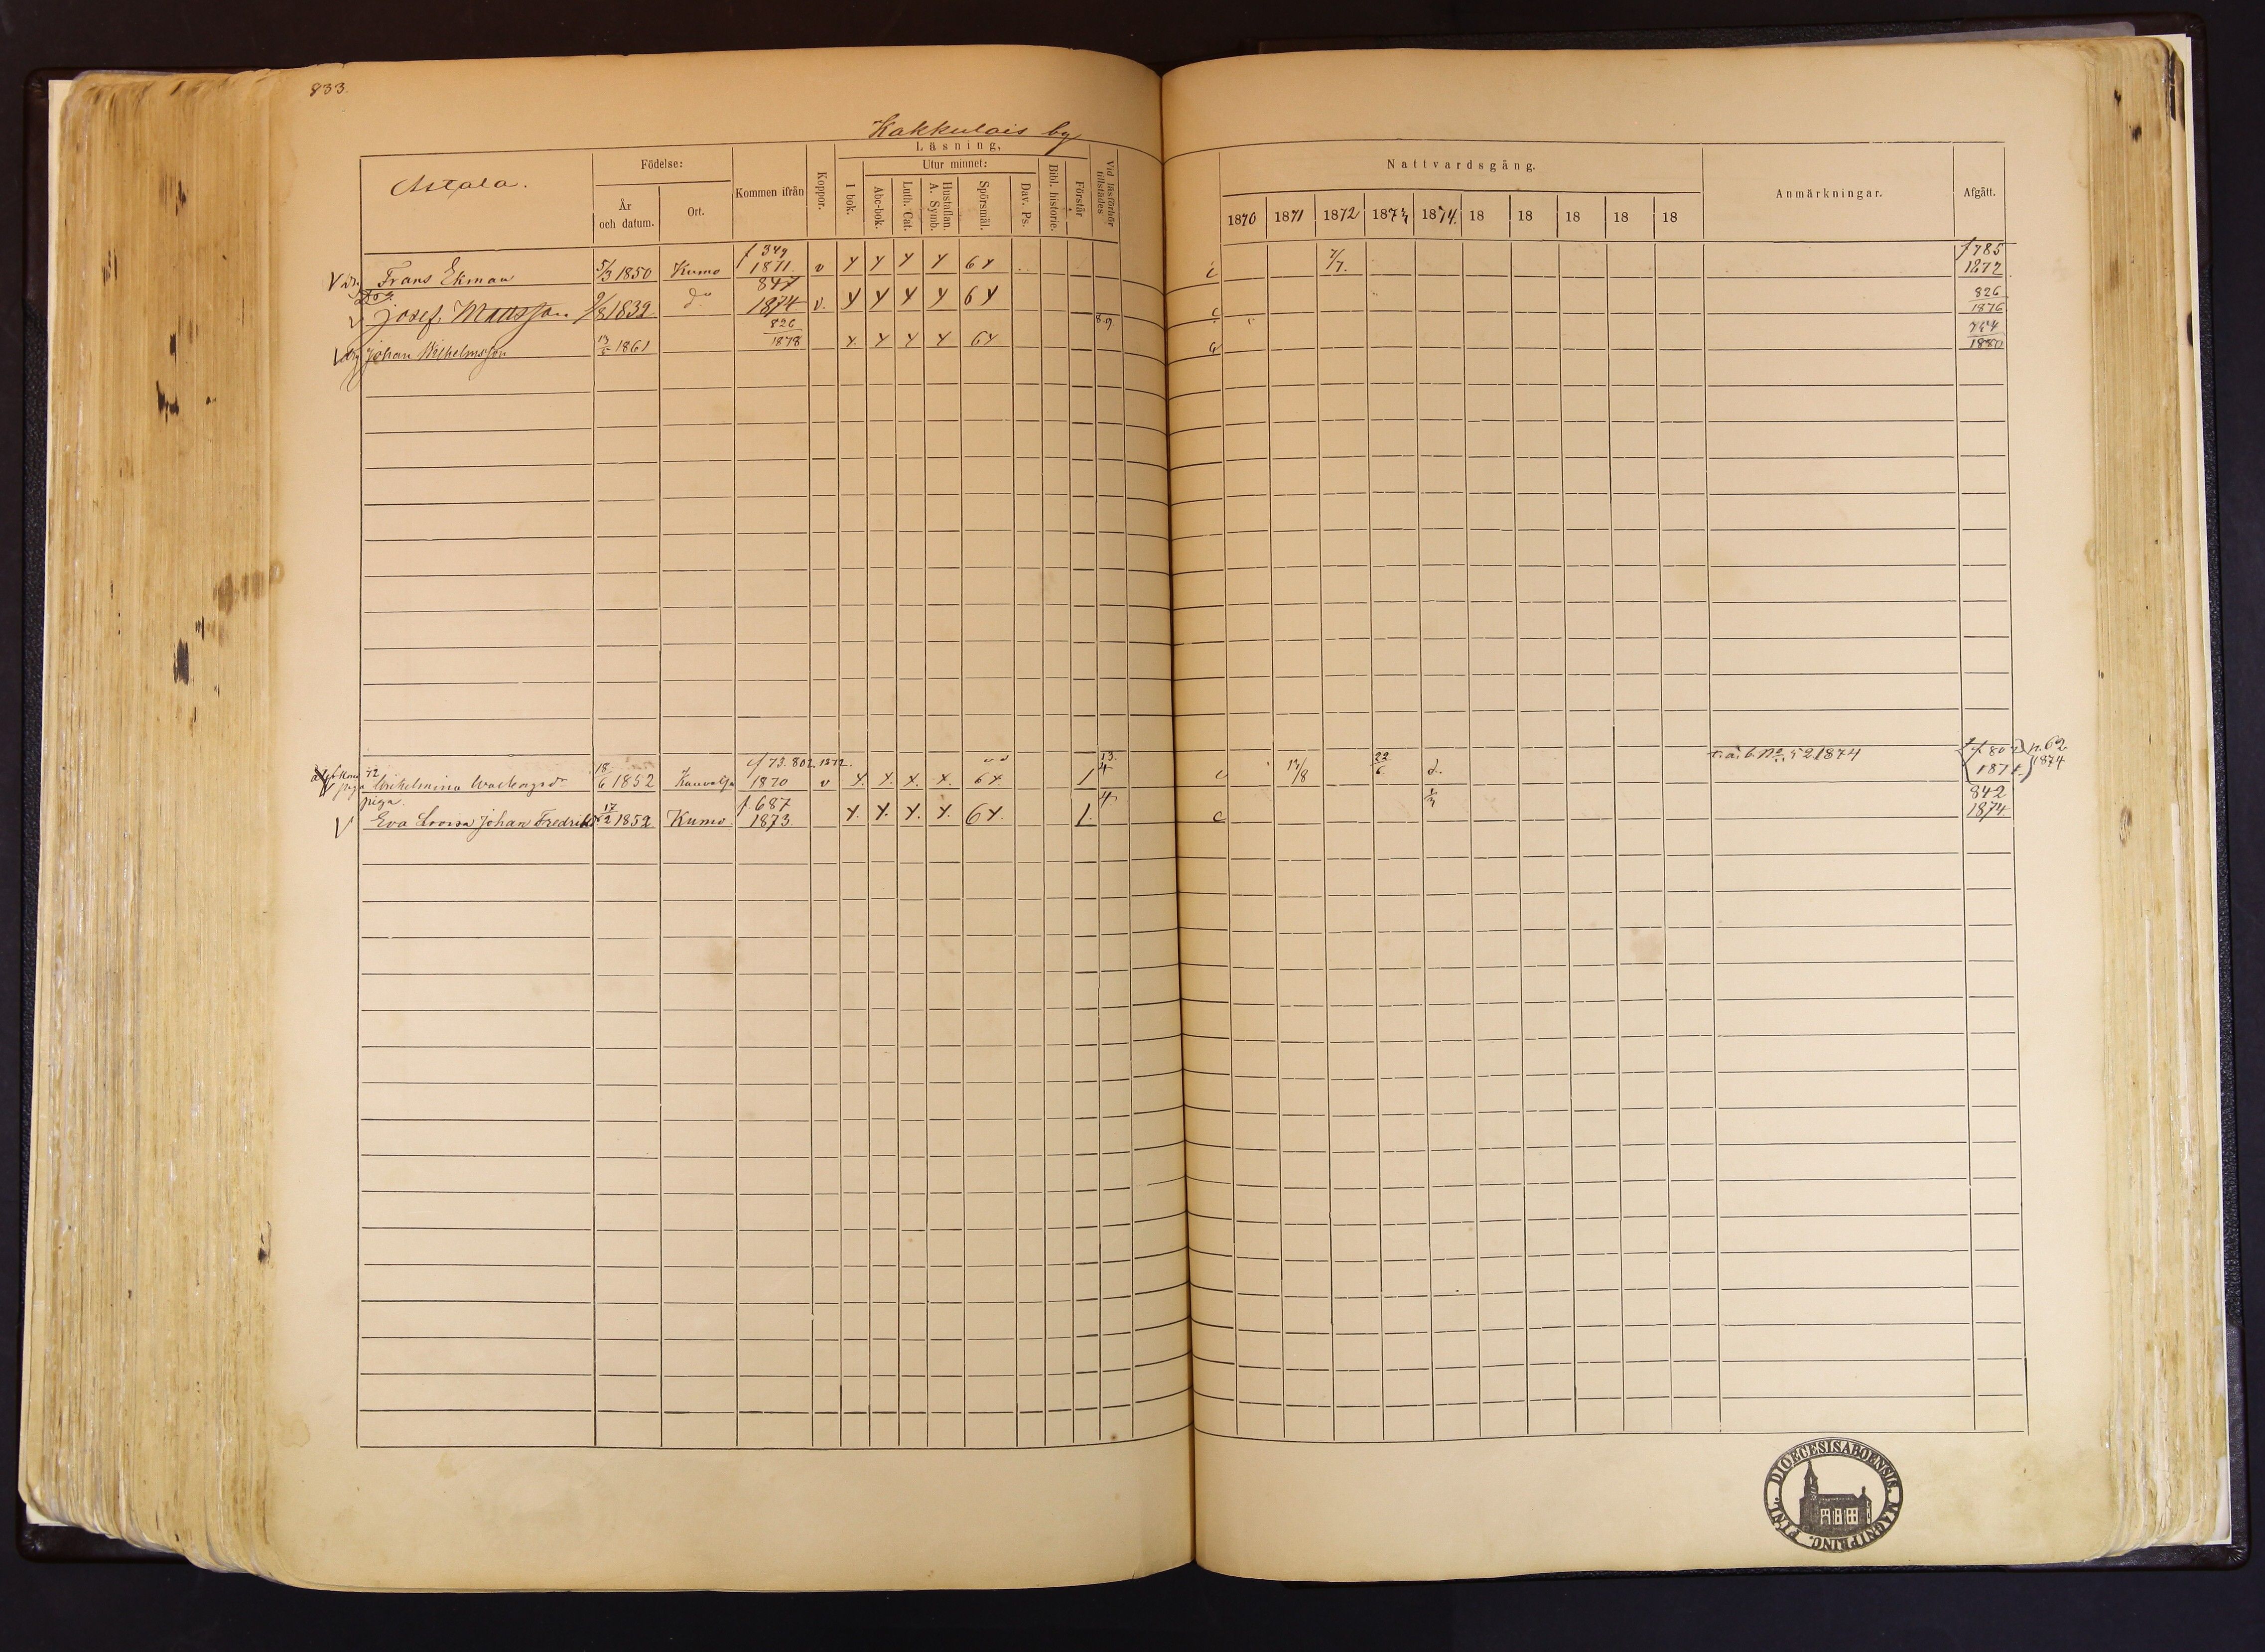 833.
Kakkulais by
Astala.
Födelse:
År och datum.
Ort.
Kommen ifrån
Koppor.
Läsning,
I bok.
Utur minnet:
Abc-bok.
Luth. Cat.
Hustaflan. A. Symb.
Spörsmål.
Dav. Ps.
Bibl. historie.
Förstår
Vid läsförhör tillstädes
Nattvardsgång.
1870 1871 1872 1873 1874. 18 18 18 18 18
Anmärkningar.
Afgått.
f 349 f 785
V Dr. Frans Ekman 5/3 1850 Kumo 1871 v Y Y Y Y 6Y 7/7. 1872
847 826
V Josef Mattsson 9/8 1839 do 1874 v. Y Y Y Y 6Y 1876
826 8.9
V Johan Wilhelmsson 1861 1878 Y Y Y Y 6Y 1880
18 f 73. 802 1872. 13. 22 n. 62
piga Wilhelmina 6 1852 1870 v Y. Y. Y. Y. 6Y. 1 4 13/8 6 d. 1874
piga 17 f 687 4. 1/3 842
V Eva Lovisa Johan Fredriksdr 2 1852 Kumo 1873. Y. Y. Y. Y. 6Y. 1. c 1874.
DIOECESIS ABOENSIS. MAGNI PRINC. FINL.